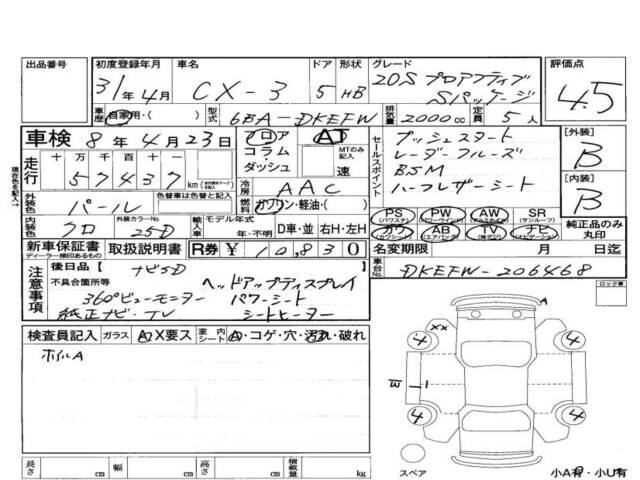 出品番号
初度登録年月 31年4月
車名 CX-3
ドア 5
形状 HB
グレード 20S プロアクティブ Sパッケージ
評価点 4.5
車歴 自家用・( )
型式 6BA-DKEFW
排気量 2000cc
定員 5人
車検 8年4月23日
フロア コラム・ダッシュ
AT
MTのみ記入 速
セールスポイント
プッシュスタート
レーダークルーズ
BSM
ハーフレザーシート
[外装] B
[内装] B
走行 十 万 千 百 十 一
57437 km
冷房 AAC
燃料 ガソリン・軽油・( )
現在色を記入
外装色 パール
色替車は元色を記入
内装色 クロ
外装カラーNo. 25D
輸入車 モデル年式 年・不明
D車・並 右H・左H
PS (パワステ)
PW (パワーウインド)
AW (アルミホイル)
SR (サンルーフ)
カワ
AB (エアバック)
TV
ナビ (ナビゲーション)
純正品のみ丸印
新車保証書
ディーラー捺印あるもの
取扱説明書
R券 ¥10,830
名変期限 月 日迄
注意事項
後日品 ナビSD
不具合箇所等
360°ビューモニター
純正ナビ・TV
ヘッドアップディスプレイ
パワーシート
シートヒーター
車台No. DKEFW-206468
ロック番
検査員記入 ガラス A X要ス
室内シート A・コゲ・穴・汚れ・破れ
ホイルA
A
XX
4
4
4
4
スペア
小A有・小U有
長さ cm
幅 cm
高さ cm
積載量 kg